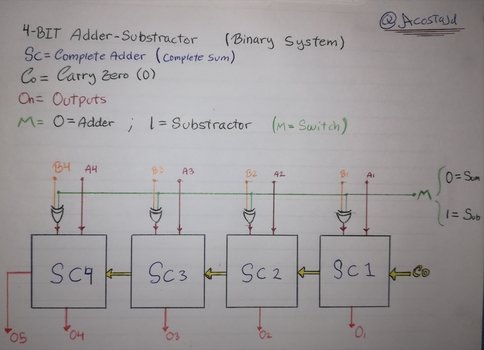 @Acostajd
4-BIT Adder-Substractor (Binary System)
Sc= Complete Adder (Complete Sum)
Co= Carry Zero (0)
On= Outputs
M= 0=Adder ; 1= Substractor (M= Switch)
B4 A4 B3 A3 B2 A2 B1 A1
M 0= Sum
1= Sub
SC4 SC3 SC2 SC1 Co
O5 O4 O3 O2 O1